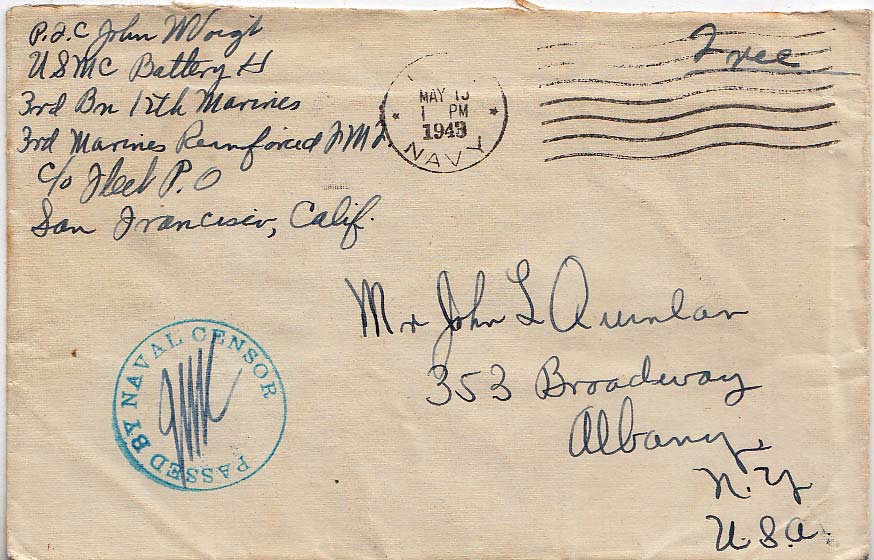 P.F.C John W Voigt
USMC Battery H
3rd Bn 12th Marines
3rd Marines Reinforced F.M.F.
c/o Fleet P.O
San Francisco, Calif.
MAY 13
1 PM
1943
NAVY
Free
Mr John L Quinlan
353 Broadway
Albany,
N.Y
U.S.A.
PASSED BY NAVAL CENSOR